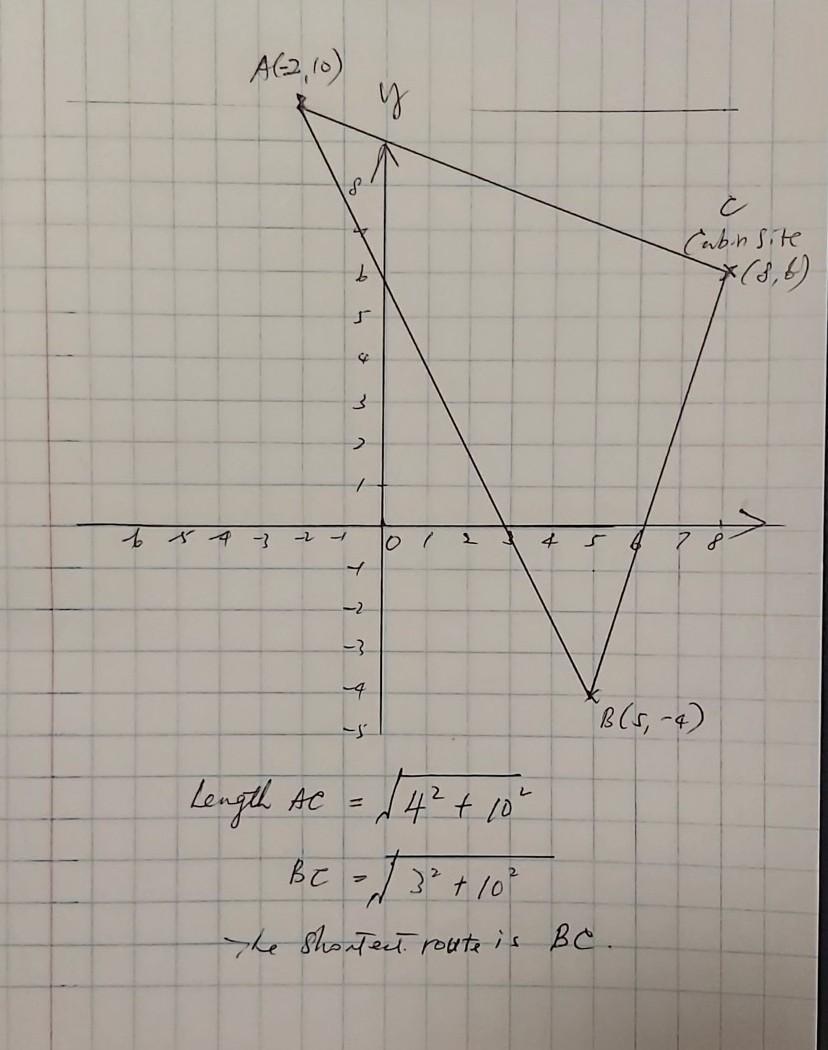 A(-2,10)
y
8
7
C
Cabin Site
(8,6)
6
5
4
3
2
1
-6 -5 -4 -3 -2 -1 0 1 2 3 4 5 6 7 8
-1
-2
-3
-4
B(5, -4)
-5
Length AC = √4² + 10²
BC = √3² + 10²
The Shortest route is BC.